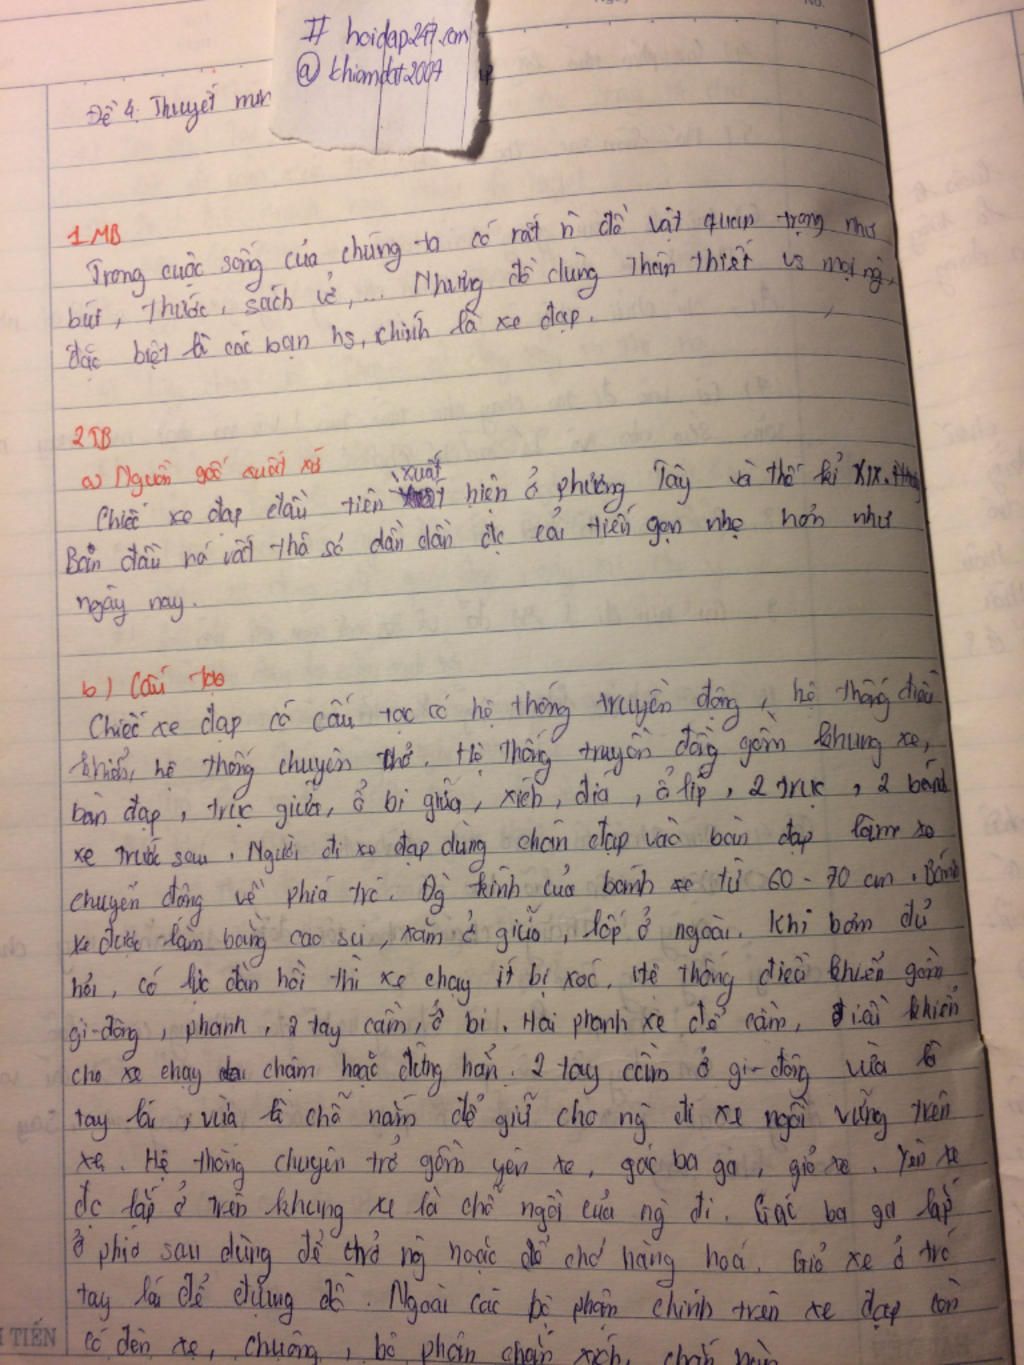 # hoidap247.com
@ khiamdat2007
Đề 4: Thuyết min
1 MB
Trong cuộc sống của chúng ta có rất n đồ vật quan trọng như
bút, thước, sách vở, ... Nhưng đồ dùng thân thiết vs mọi ng,
đặc biệt là các bạn hs, chính là xe đạp.
2 TB
a) Nguồn gốc xuất xứ
xuất
Chiếc xe đạp đầu tiên hiện ở phương Tây và thế kỉ XIX.
Ban đầu nó vất thô sơ dần dần đc cải tiến gọn nhẹ hơn như
ngày nay.
b) Cấu tạo
Chiếc xe đạp có cấu tạo có hệ thống truyền động, hệ thống điều
khiển, hệ thống chuyên chở. Hệ thống truyền động gồm khung xe,
bàn đạp, trục giữa, ổ bi giữa, xích, đĩa, ổ líp, 2 trục, 2 bánh
xe trước sau. Người đi xe đạp dùng chân đạp vào bàn đạp làm xe
chuyển động về phía trc. Đg kính của bánh xe từ 60 - 70 cm. Bánh
xe được làm bằng cao su, xăm ở giữa, lốp ở ngoài. Khi bơm đủ
hơi, có lực đàn hồi thì xe chạy ít bị xóc. Hệ thống điều khiển gồm
gi-đông, phanh, 2 tay cầm, ổ bi. Hai phanh xe để cầm, điều khiển
cho xe chạy chậm hoặc dừng hẳn. 2 tay cầm ở gi-đông vừa là
tay lái, vừa là chỗ nắm để giữ cho ng đi xe ngồi vững trên
xe. Hệ thống chuyên trở gồm yên xe, gác ba ga, giỏ xe. Yên xe
đc lắp ở trên khung xe là chỗ ngồi của ng đi. Gác ba ga lắp
ở phía sau dùng để chở ng hoặc để chở hàng hoá. Giỏ xe ở trc
tay lái để đựng đồ. Ngoài các bộ phận chính trên xe đạp còn
có đèn xe, chuông, bộ phận chắn xích, chắn bùn
TIẾN